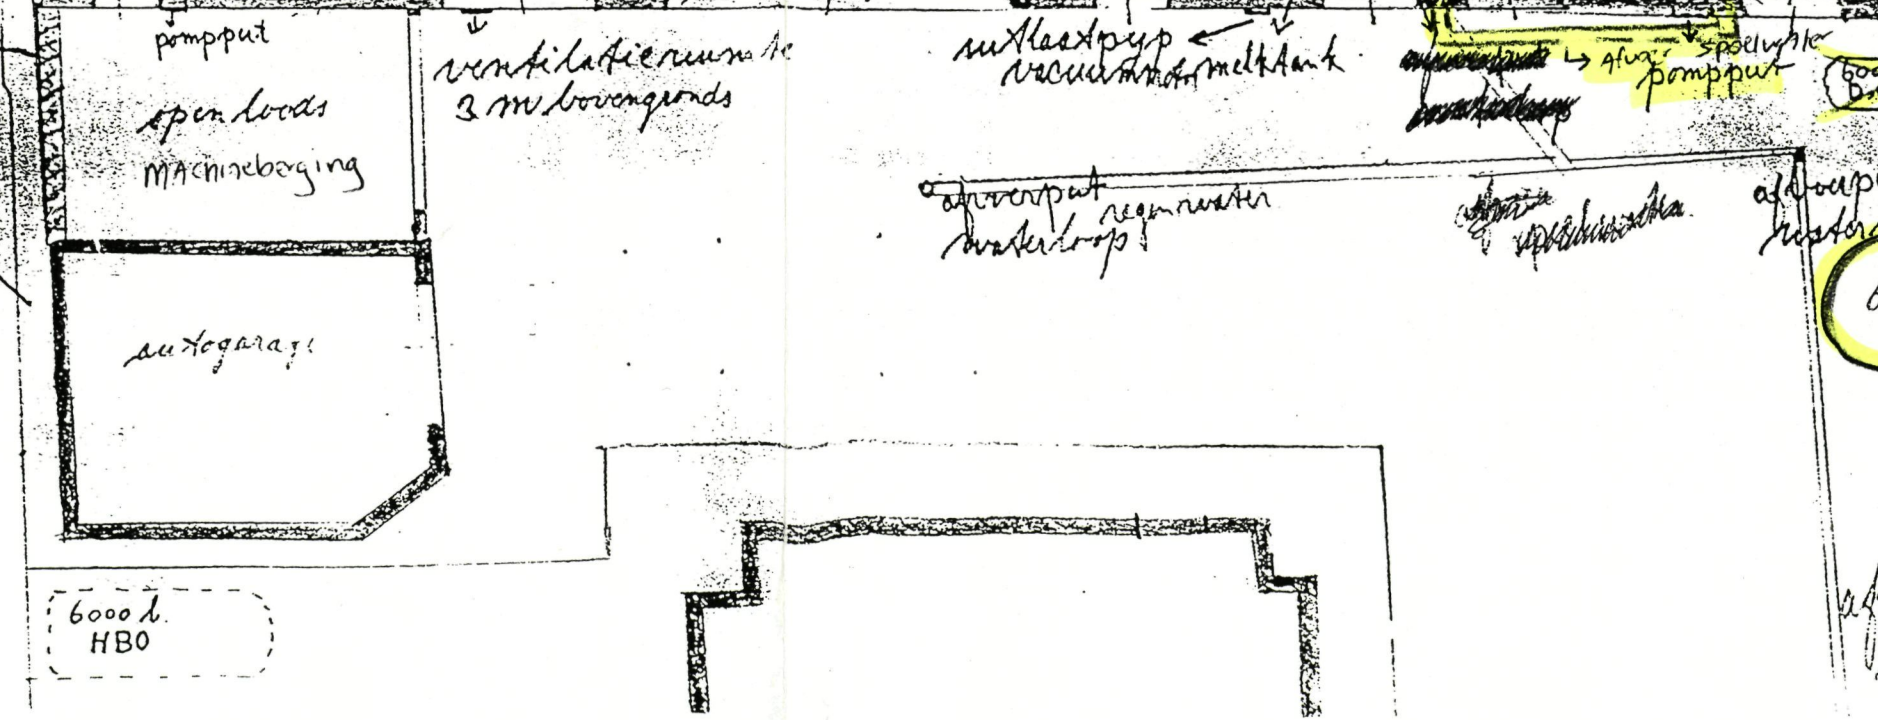 pompput
open loods
MAchineberging
ventilatieruimte
3 m bovengronds
uitlaatpijp
vacuummotor melktank
Afvoer spoelwater
pompput
600
afvoerput regenwater
waterloop
autogarage
6000 l.
HBO